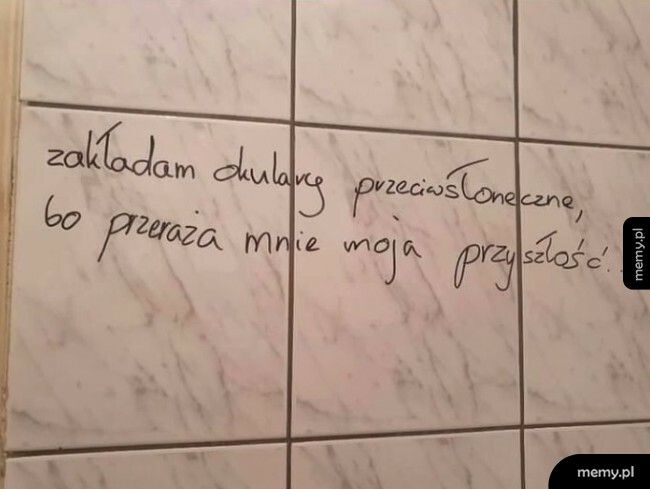 zakładam okulary przeciwsłoneczne,
bo przeraża mnie moja przyszłość...
memy.pl
memy.pl